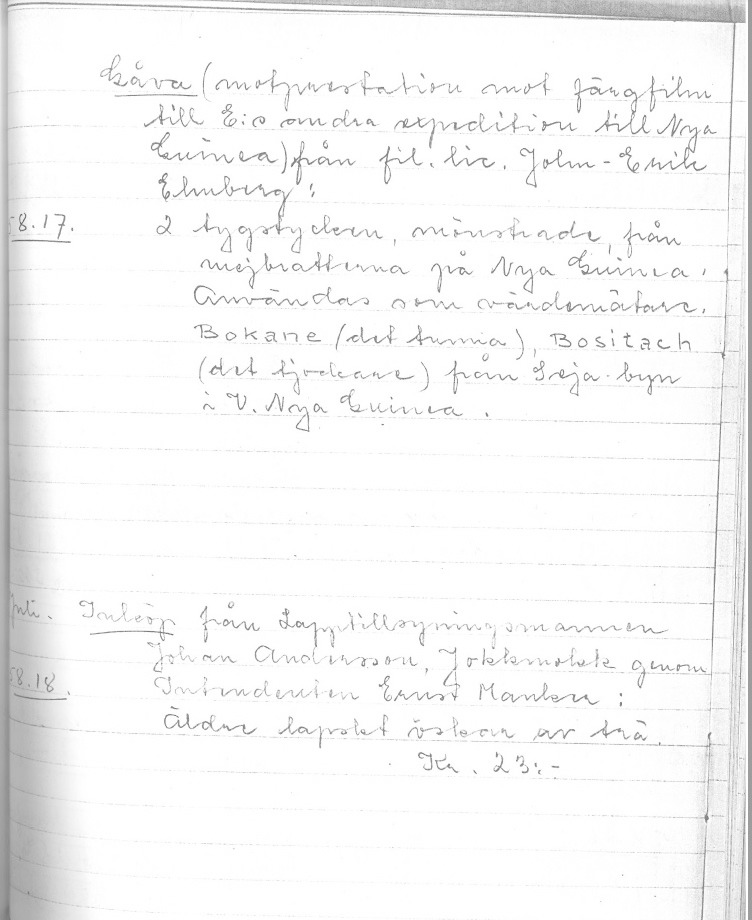 Gåva (motprestation mot färgfilm
till E:s andra expedition till Nya
Guinea) från fil. lic. John-Erik
Elmberg:
58.17. 2 tygstycken, mönstrade, från
mejbratterna på Nya Guinea.
Användas som värdemätare.
Bokane (det tunna), Bositach
(det tjockare) från Seja-byn
i V. Nya Guinea.
Juli. Inköp från Lapptillsyningsmannen
Johan Andersson, Jokkmokk genom
58.18. Intendenten Ernst Manker:
Äldre lapskt öskar av trä.
Kr. 23:-